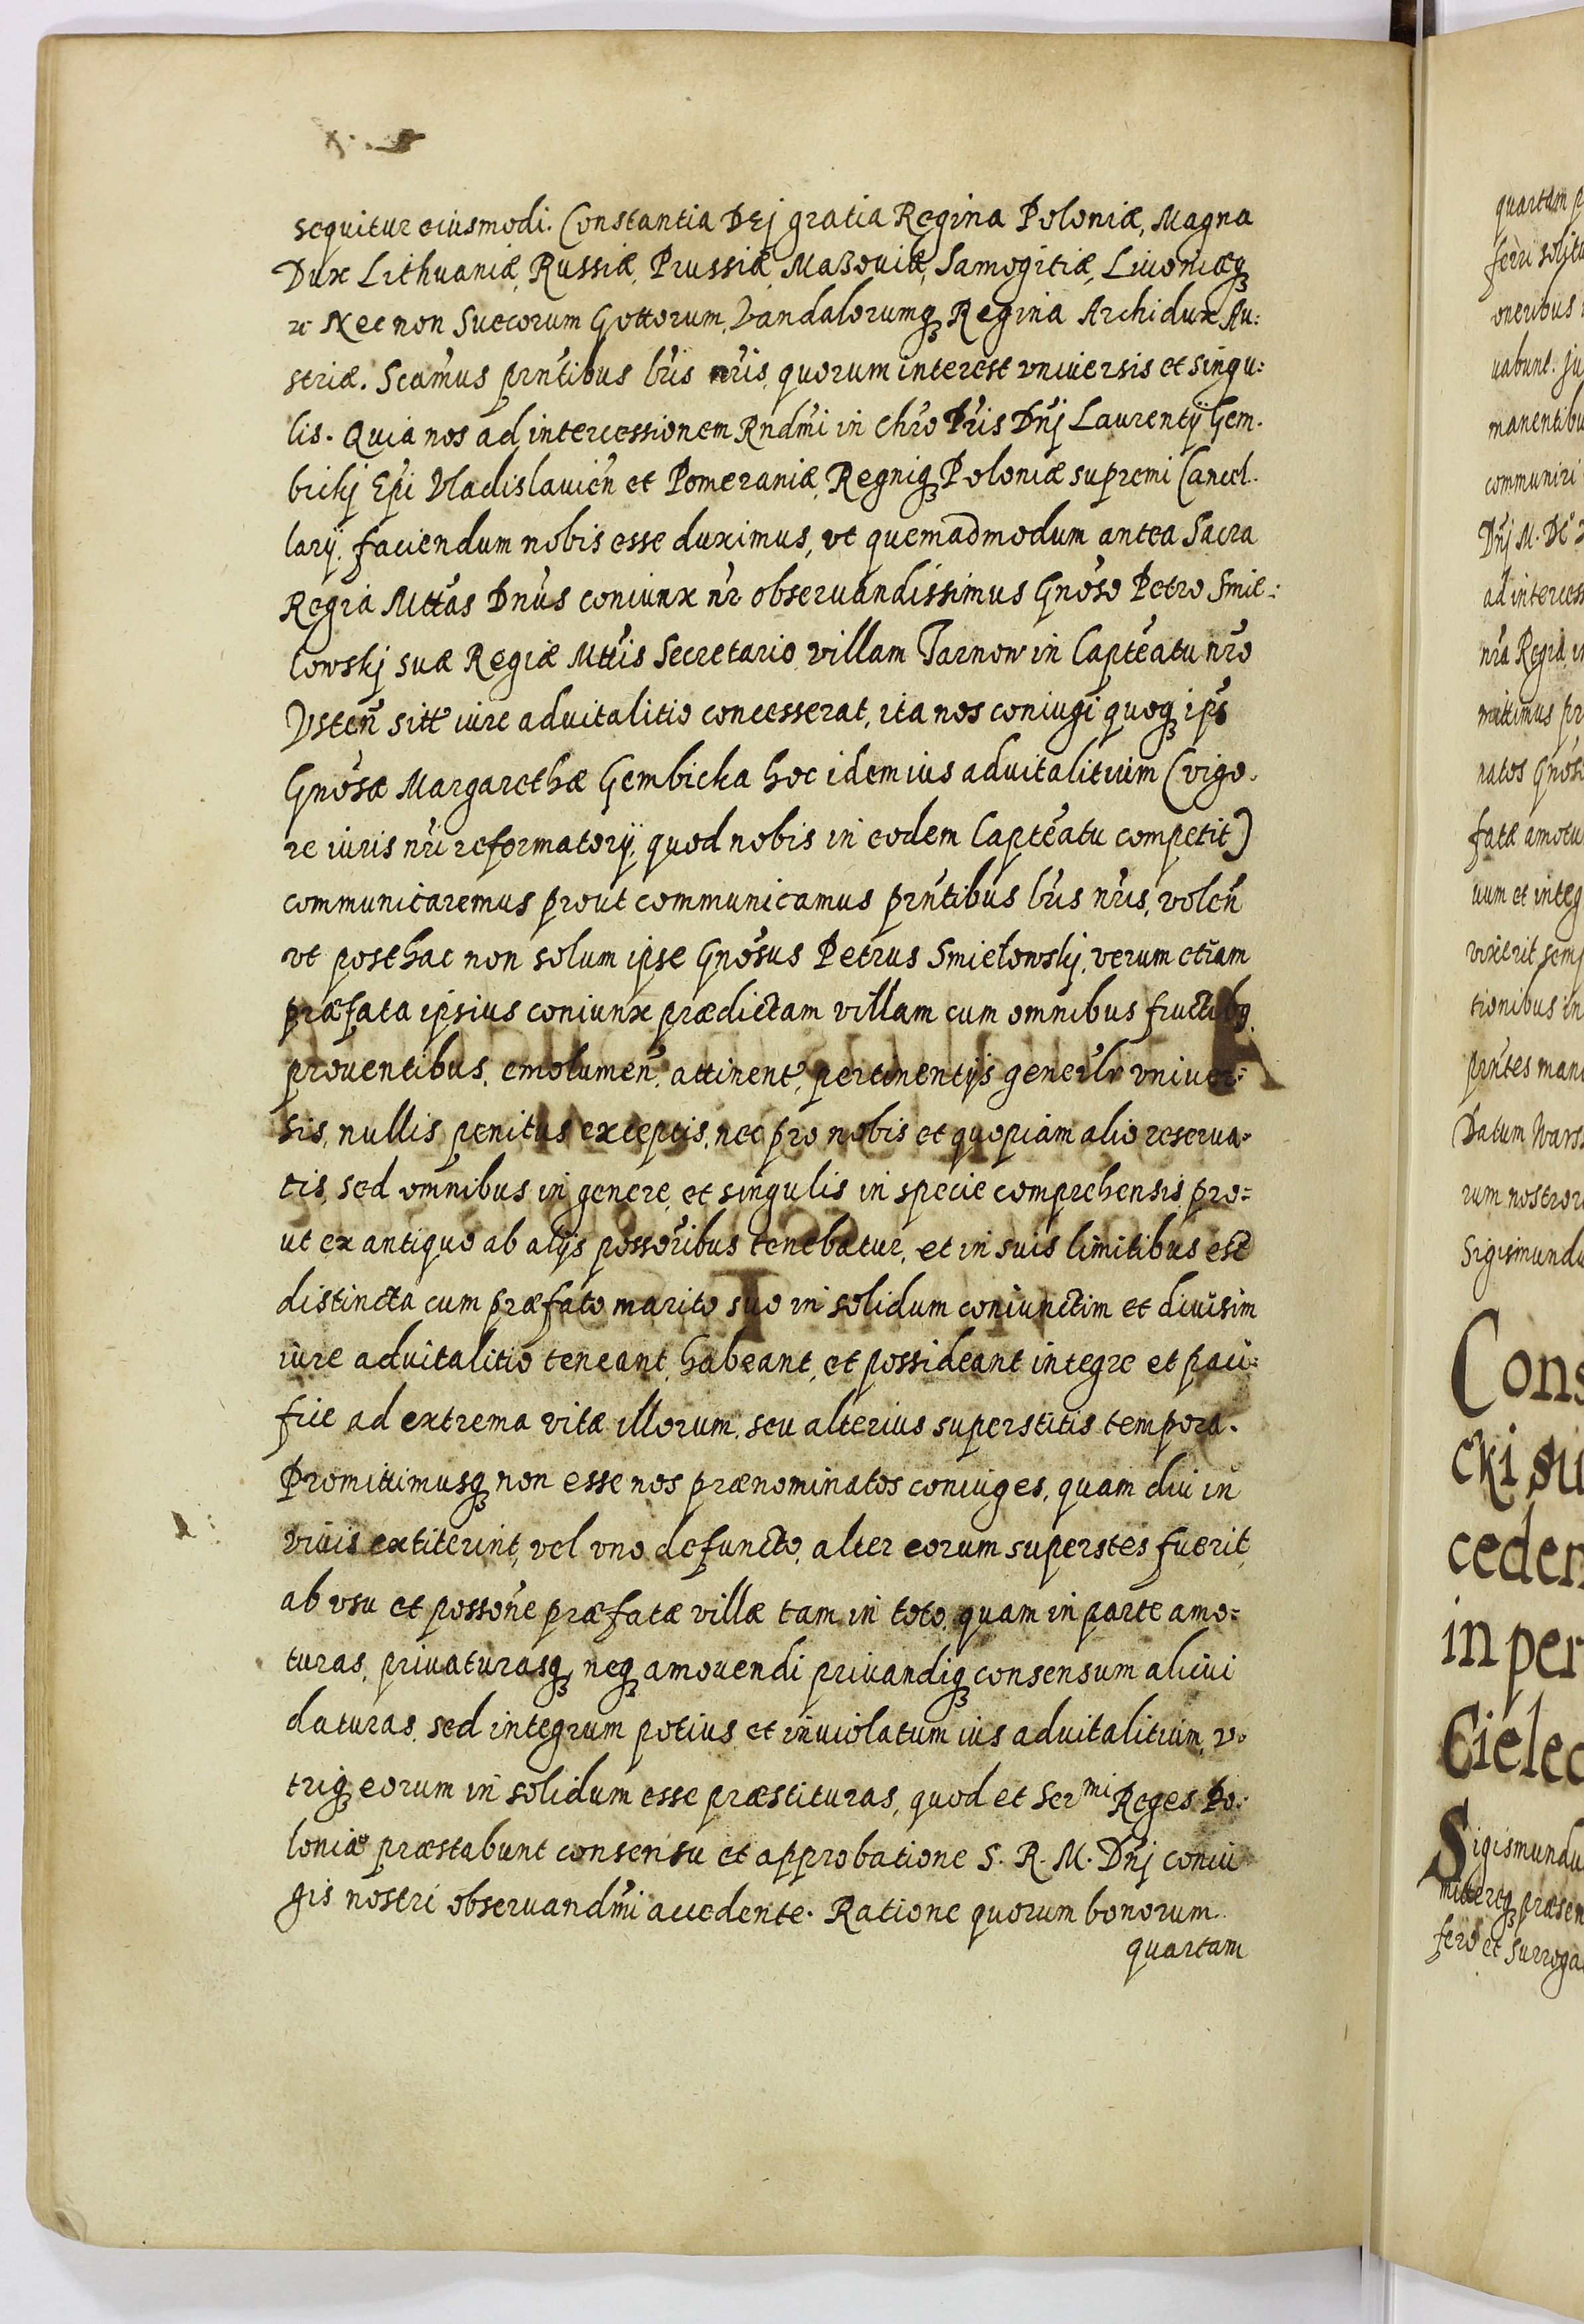 sequitur eiusmodi. Constantia Dej gratia Regina Poloniæ, Magna
Dux Lithuaniæ, Russiæ, Prussiæ, Mazouiæ, Samogitiæ, Liuoniæq̢
⁊c Nec non Suecorum Gottorum, Vandalorumq̢ Regina Archidux Au:
striæ. Scãmus prñtibus lr̃is nr̃is, quorum interest vniuersis et singu:
lis. Quia nos ad intercessionem Rndm̃i in Chr̃o Pr̃is Dñj Laurentij Gem.
bickj Ep̃i Vladislauieñ et Pomeraniæ, Regniq̢ Poloniæ supremi Cancel.
larij. faciendum nobis esse duximus, vt quemadmodum antea Sacra
Regia Mttas Dñus coniunx nr̃ obseruandissimus Gnõso Petro Smie:
lowskj suæ Regiæ Mttis Secretario villam Tarnow in Captẽatu nr̃o
Vsteñ sitt̃ iure aduitalitio concesserat, ita nos coniugi quoq̢ ips̃
Gnõsæ Margarethæ Gembicka hoc idem ius aduitalitium (vigo.
re iuris nr̃i reformatorij, quod nobis in eodem Captẽatu competit)
communicaremus prout communicamus prñtibus lr̃is nr̃is, voleñ
vt posthac non solum ipse Gnõsus Petrus Smiełowskj, verum etiam
præfata ipsius coniunx prædictam villam cum omnibus fructibq̢
prouentibus, emolumeñ, attinent̃, pertinentijs gener̃lr vniuer:
sis, nullis penitus exceptis, nec pro nobis et quopiam alio reserua.
tis, sed omnibus in genere, et singulis in specie comprehensis, pro:
ut ex antiquo ab alijs possor̃ibus tenebatur, et in suis limitibus est
distincta cum præfato marito suo in solidum coniunctim et diuisim
iure aduitalitio teneant, habeant, et possideant integre et paci:
fice ad extrema vitæ illorum, seu alterius superstitis tempora.
Promittimusq̢ non esse nos prænominatos coniuges, quam diu in
viuis extiterint, vel vno defuncto, alter eorum superstes fuerit,
ab vsu et possoñe præfatæ villæ tam in toto, quam in parte amo:
turas, priuaturasq̢, neq̢ amouendi priuandiq̢ consensum alicui
daturas, sed integrum potius et inuiolatum ius aduitalitium, v.
triq̢ eorum in solidum esse præstituras, quod et Ser^mi Reges Po:
loniæ præstabunt consensu et approbatione S. R. M. Dñj coniu
gis nostri obseruandm̃i accedente. Ratione quorum bonorum
quartam
quartam p
ferri solitu
oneribus
uabunt. Ju
manentibu
communiri
Dñj M. De
ad interces
nr̃a Regia, i
mittimus pr
natos Gnõs
fatæ amotu
uum et integ
vixerit, semp
tionibus in
prñtes man
Datum Wars
rum nostror
Sigismundu
Cons
cki su
ceden
in per
Cielec
Sigismundu
mitterq̢ præsen
fero et surroga